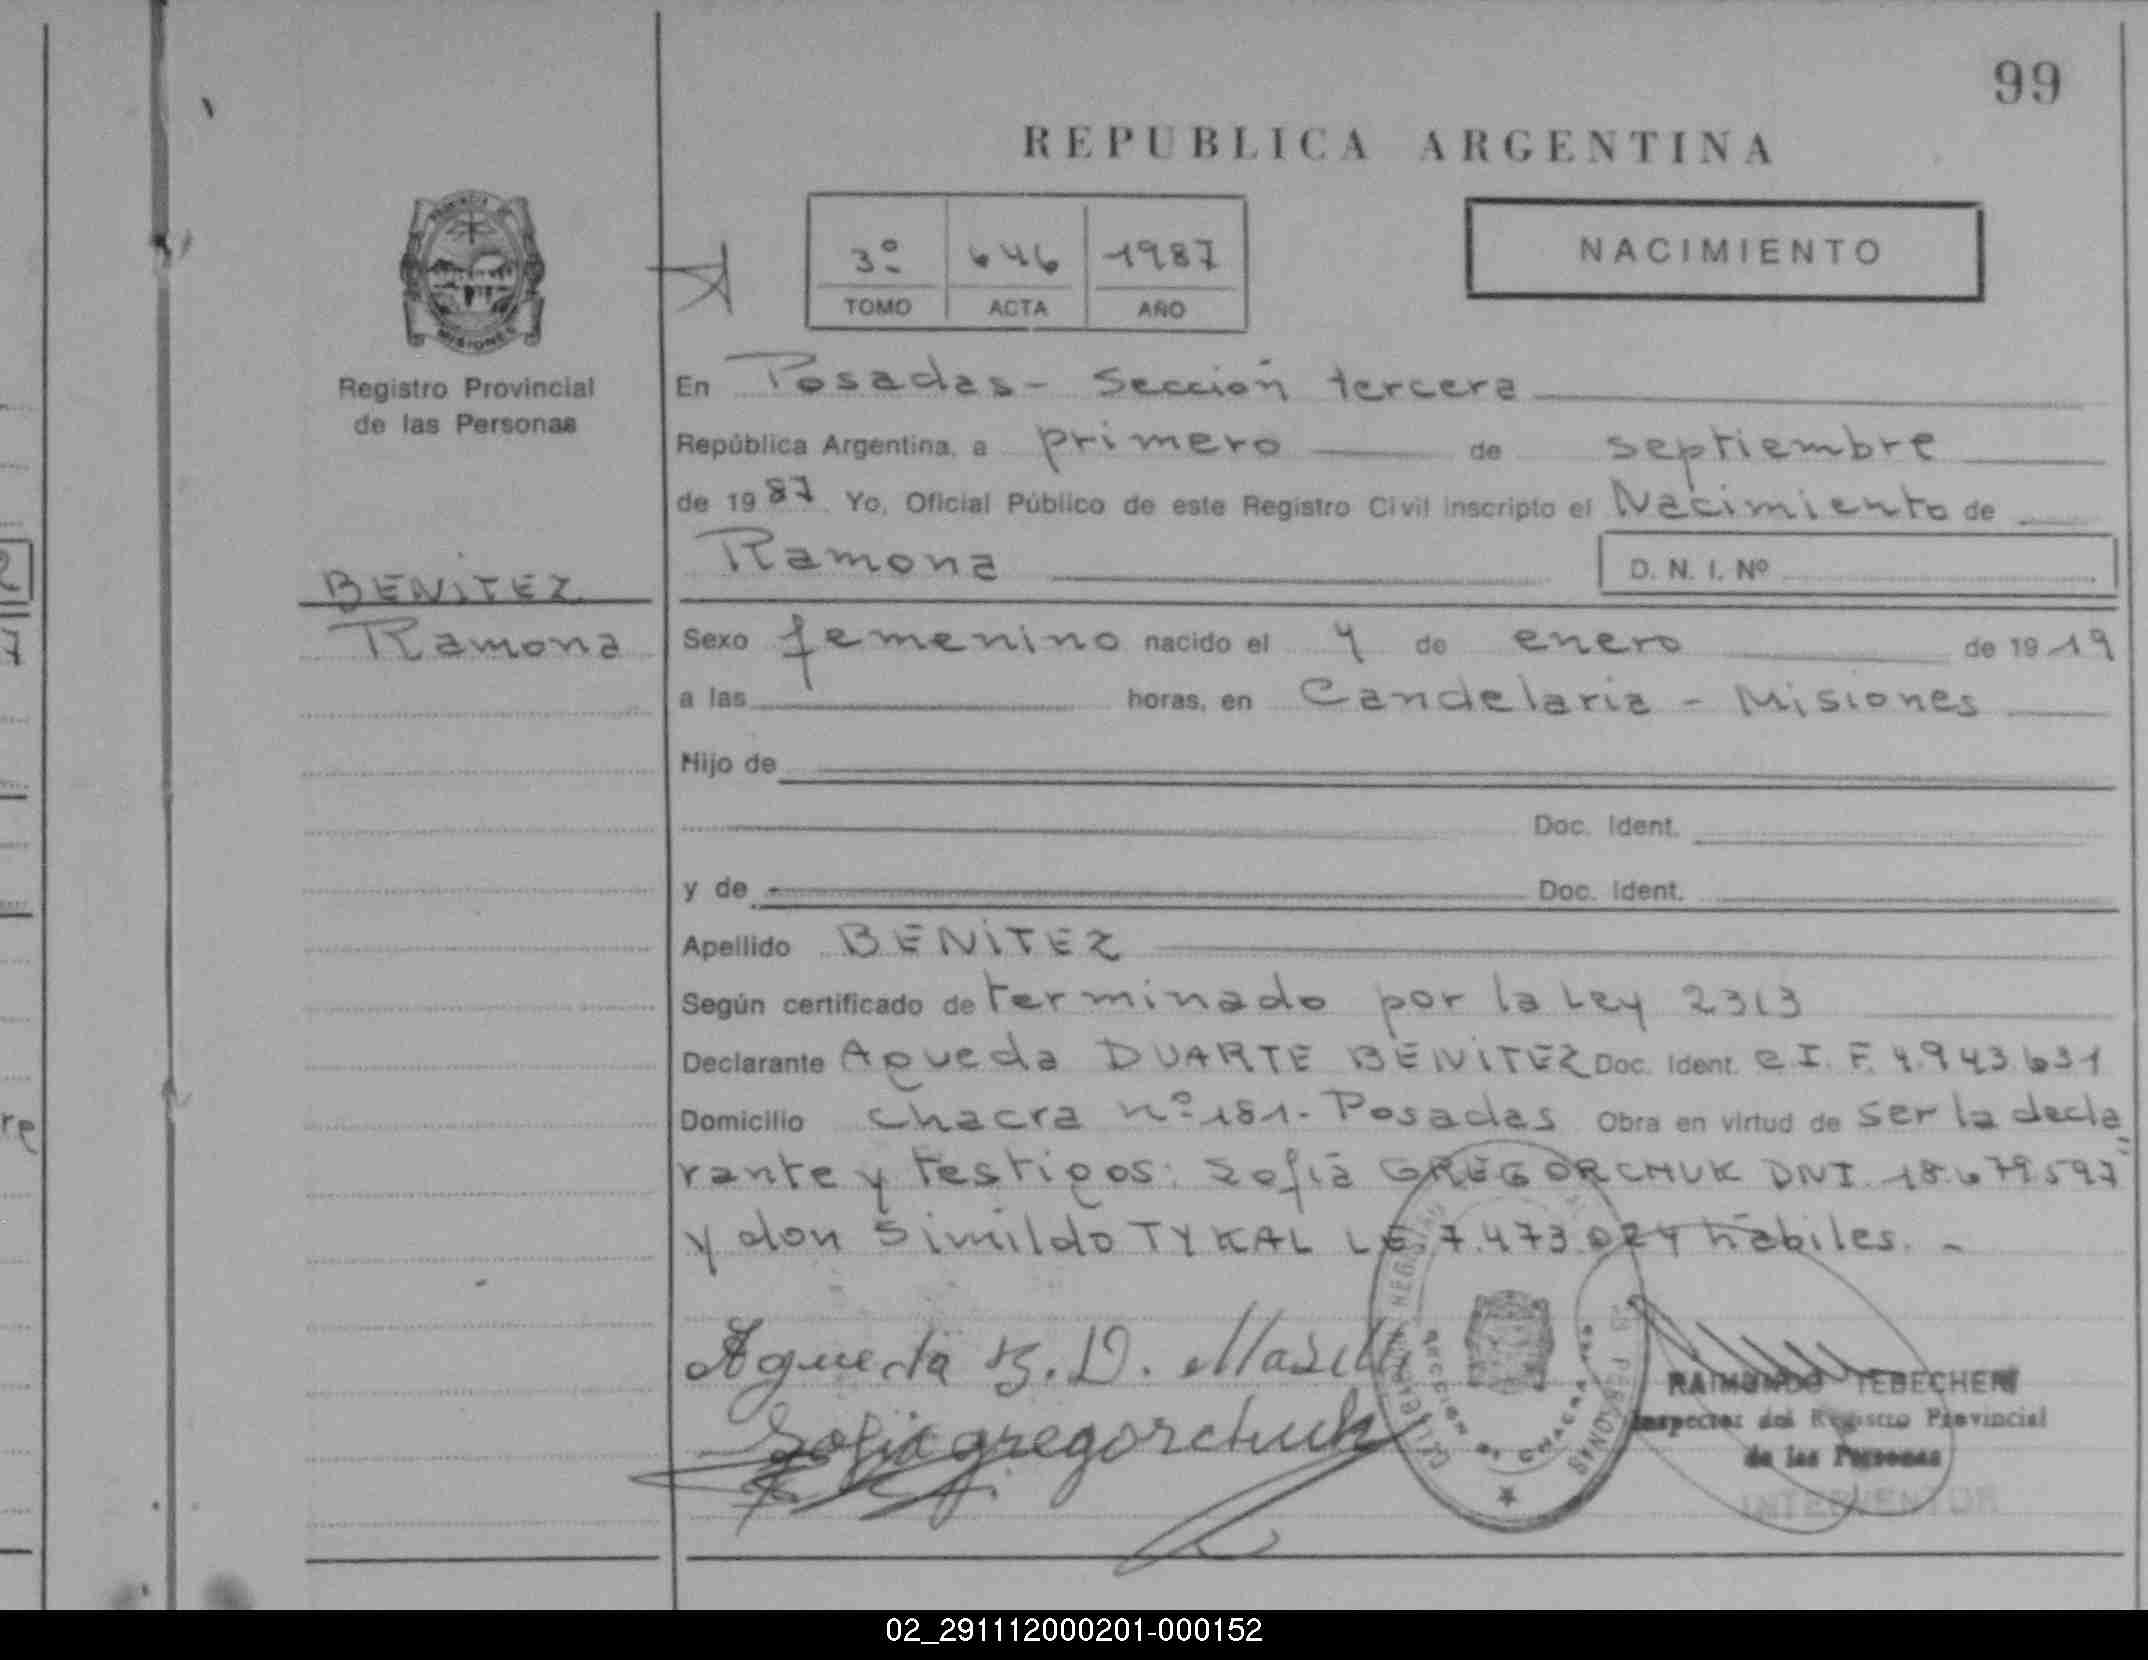 99
REPUBLICA ARGENTINA
3º 646 1987
TOMO ACTA AÑO
NACIMIENTO
PROVINCIA DE
MISIONES
Registro Provincial
de las Personas
En Posadas - Sección tercera
República Argentina, a primero de septiembre
de 1987. Yo, Oficial Público de este Registro Civil inscripto el Nacimiento de
Ramona D. N. I. Nº
BENITEZ
Ramona
Sexo femenino nacido el 4 de enero de 1919
a las horas, en Candelaria - Misiones
Hijo de
Doc. Ident.
y de Doc. Ident.
Apellido BENITEZ
Según certificado determinado por la Ley 2313
Declarante Agueda DUARTE BENITEZ Doc. Ident. C.I. F. 4.943.631
Domicilio Chacra nº 181 - Posadas Obra en virtud de ser la decla
rante y testigos: Sofia GREGORCHUK DNI. 18.679.597
y don Simildo TYKAL LE 7.473.024 hábiles. -
Agueda B. D.
Sofia gregorchuk
SECCION 3ª CHACRA 181
RAIMUNDO TEBECHERI
Inspector del Registro Provincial
de las Personas
INTERVENTOR
re
02_291112000201-000152